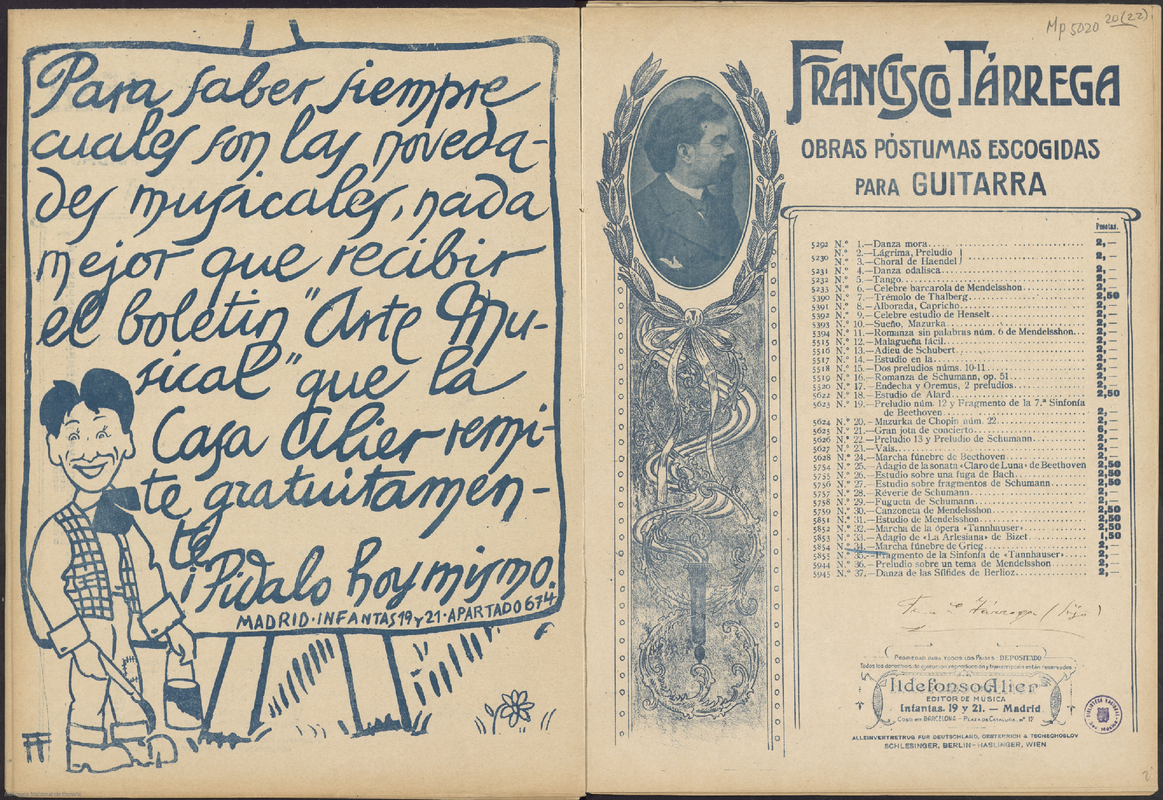 Para saber siempre
cuales son las noveda-
des musicales, nada
mejor que recibir
el boletin "Arte Mu-
sical" que la
Casa Alier remi-
te gratuitamen-
te
¡Pidalo hoy mismo.
MADRID·INFANTAS 19 y 21·APARTADO 674
Mp 5020 20(22)
FRANCISCO TÁRREGA
OBRAS PÓSTUMAS ESCOGIDAS
PARA GUITARRA
Pesetas.
5292 N.º 1.—Danza mora 2,—
N.º 2.—Lágrima, Preludio
5230 N.º 3.—Choral de Haendel 2,—
5231 N.º 4.—Danza odalisca 2,—
5232 N.º 5.—Tango 2,—
5233 N.º 6.—Célebre barcarola de Mendelsshon 2,—
5390 N.º 7.—Trémolo de Thalberg 2,50
5391 N.º 8.—Alborada, Capricho 2,—
5392 N.º 9.—Celebre estudio de Henselt 2,—
5393 N.º 10.—Sueño, Mazurka 2,—
5394 N.º 11.—Romanza sin palabras núm. 6 de Mendelsshon 2,—
5515 N.º 12.—Malagueña fácil 2,—
5516 N.º 13.—Adieu de Schubert 2,—
5517 N.º 14.—Estudio en la 2,—
5518 N.º 15.—Dos preludios núms. 10-11 2,—
5519 N.º 16.—Romanza de Schumann, op. 51 2,—
5520 N.º 17.—Endecha y Oremus, 2 preludios 2,—
5622 N.º 18.—Estudio de Alard 2,50
5623 N.º 19.—Preludio núm. 12 y Fragmento de la 7.ª Sinfonía
de Beethoven 2,—
5624 N.º 20.—Mazurka de Chopin núm. 22 2,—
5625 N.º 21.—Gran jota de concierto 6,—
5626 N.º 22.—Preludio 13 y Preludio de Schumann 2,—
5627 N.º 23.—Vals 2,—
5628 N.º 24.—Marcha fúnebre de Beethoven 2,—
5754 N.º 25.—Adagio de la sonata «Claro de Luna» de Beethoven 2,50
5755 N.º 26.—Estudio sobre una fuga de Bach 2,50
5756 N.º 27.—Estudio sobre fragmentos de Schumann 2,50
5757 N.º 28.—Rêverie de Schumann 2,—
5758 N.º 29.—Fugueta de Schumann 2,—
5759 N.º 30.—Canzoneta de Mendelsshon 2,50
5851 N.º 31.—Estudio de Mendelsshon 2,50
5852 N.º 32.—Marcha de la ópera «Tannhauser» 2,50
5853 N.º 33.—Adagio de «La Arlesiana» de Bizet 1,50
5854 N.º 34.—Marcha fúnebre de Grieg 2,—
5855 N.º 35.—Fragmento de la Sinfonía de «Tannhauser» 2,—
5944 N.º 36.—Preludio sobre un tema de Mendelsshon 2,—
5945 N.º 37.—Danza de las Sílfides de Berlioz 2,—
Tárrega (hijo)
PROPIEDAD PARA TODOS LOS PAISES: DEPOSITADO
Todos los derechos de ejecución reproducción y transcripción están reservados
Ildefonso Alier
EDITOR DE MÚSICA
Infantas, 19 y 21. — Madrid
CASA EN BARCELONA – PLAZA DE CATALUÑA, n.º 17
ALLEINVERTRETUG FUR DEUTSCHLAND, OESTERRICH & TSCHECHOSLOV
SCHLESINGER, BERLIN—HASLINGER, WIEN
BIBLIOTECA NACIONAL